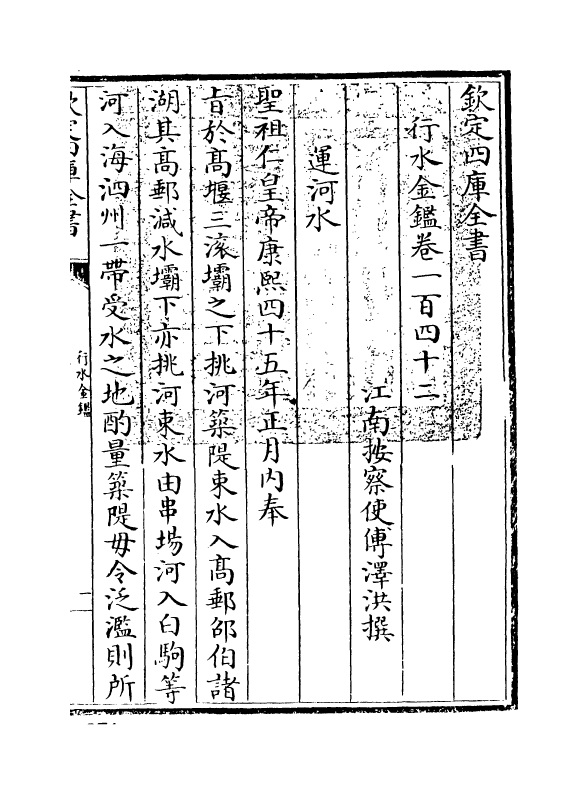 欽定四庫全書
行水金鑑卷一百四十二
江南按察使傅澤洪撰
運河水
聖祖仁皇帝康熙四十五年正月内奉
㫖於髙堰三滚壩之下挑河築隄東水入髙郵邵伯諸
湖其髙郵減水壩下亦挑河東水由串塲河入白駒等
河入海泗州一帶受水之地酌量築隄毋令泛濫則所
欽定四庫全書
行水金鑑
一